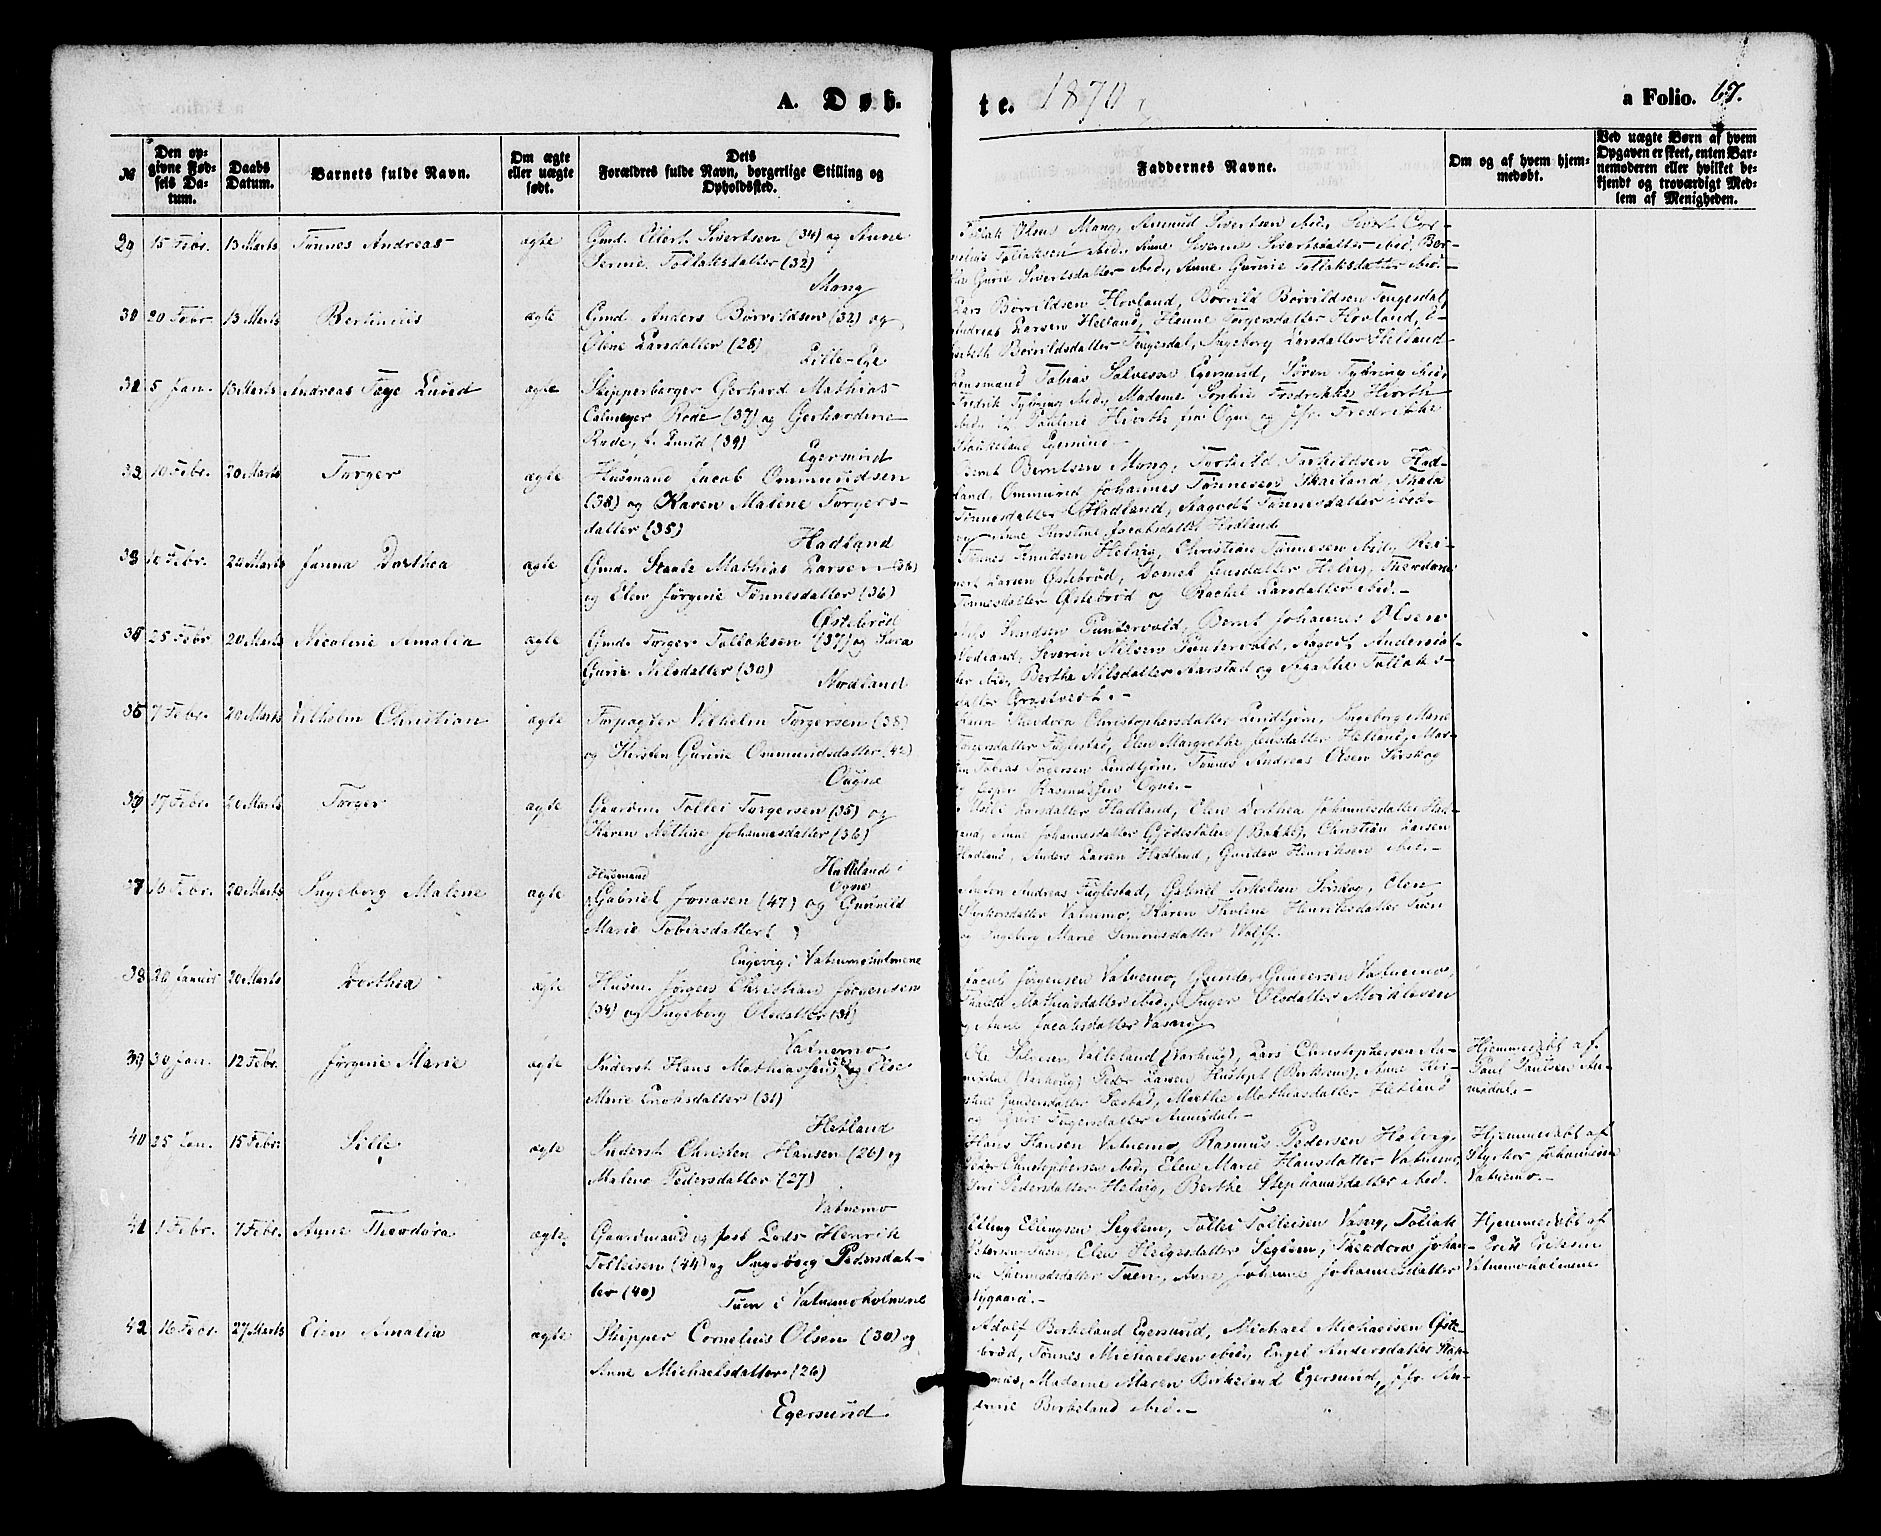 A. Døb-
te. 1870,
a Folio. 67.
№
Den op-
givne Fød-
sels Da-
tum.
Daabs
Datum.
Barnets fulde Navn.
Om ægte
eller uægte
født.
Dets
Forældres fulde Navn, borgerlige Stilling og
Opholdssted.
Faddernes Navne.
Om og af hvem hjem-
medøbt.
Ved uægte Børn af hvem
Opgaven er skeet, enten Bar-
nemoderen eller hvilket be-
kjendt og troværdigt Med-
lem af Menigheden.
29 15 Febr. 13 Marts Tønnes Andreas ægte Gmd. Eilert Sivertsen (34) og Anne
Serine Tollaksdatter (32)
Mong
Tollak Olsen Mong, Aamund Sivertsen ibid, Sivert Cor-
nelius Tollaksen ibid, Anne Severine Sivertsdatter ibid, Ber-
the Gurie Sivertsdatter ibid, Anne Gurine Tollaksdatter ibid.-
30 20 Febr 13 Marts Bertinius ægte Gmd Anders Børvildsen (32) og
Olene Larsdatter (28)
Lille-Ege
Lars Børvildsen Hovland, Børvild Børvildsen Tengesdal,
Andreas Larsen Helland, Hanne Torgersdatter Hovland, E-
lisabeth Børvildsdatter Tengesdal, Ingeborg Larsdatter Helland
31 5 Jan. 13 Marts Andreas Faye Lund ægte Skipperborger Gerhard Mathias
Calmeyer Rode (37) og Gerhardine
Rode, f. Lund (39)
Egersund
Lensmand Tobias Salvesen Egersund, Søren Tybring ibid,
Fredrik Tybring ibid, Madame Sophie Fredrikke Hiorth
ibid, Pauline Hiorth fra Ogne og Jfr. Fredrikke
Egersund.-
32 10 Febr. 20 Marts Torger ægte Husmand Jacob Ommundsen
(38) og Karen Malene Torgers-
datter (35)
Hadland
Bernt Berntsen Mong, Torkild Torkildsen Had-
land, Ommund Johannes Tønnesen Skailand, Thala
Tønnesdatter Hadland, Aagodt Tønnesdatter ibid
og Anne Kirstine Jacobsdatter Hadland
33 10 Febr. 20 Marts Janna Dorthea ægte Gmd. Staale Mathias Larsen (36)
og Elen Jørgine Tønnesdatter (36)
Østebrød
Tønnes Knudsen Helvig, Christian Tønnesen ibid, Rei-
nert Larsen Østebrød, Dornet Jensdatter Helvig, Theodora
Tønnesdatter Østebrød og Rachel Larsdatter ibid.-
34 25 Febr 20 Marts Nicoline Amalia ægte Gmd. Torger Tollaksen (37) og Sara
Gurie Nilsdatter (30)
Nodland
Nils Puntervold, Bernt Johannes Olsen
Nodland, Severin Nilsen Puntervold, Aagodt Andersdat-
ter ibid, Berthe Nilsdatter Aarstad og Agathe Tollaks-
datter .-
35 7 Febr. 20 Marts Vilhelm Christian ægte Forpagter Vilhelm Torgersen (38)
og Kirsten Gurine Ommundsdatter (42)
Ougne
Theodora Christophersdatter Lindtjørn, Ingeborg Marie
Torgersdatter Fuglestad, Elen Margrethe Jensdatter Helland, Mar-
tin Tobias Torgersen Lindtjørn, Tønnes Andreas Olsen Sirskog
og Rasmussen Ogne.-
36 17 Febr. 20 Marts Torger ægte Gaardm. Tollei Torgersen (35) og
Karen Nilline Johannesdatter (36)
Hadland i
Ogne
Larsdatter Hadland, Elen Dorthea Johannesdatter Had-
land, Anne Johannesdatter Gjedestølen (Bakke), Christian Larsen
Hadland, Anders Larsen Hadland, Gunder Henriksen ibid.-
37 16 Febr. 20 Marts Ingeborg Malene ægte Husmand
Gabriel Jonasen (47) og Gunnild
Marie Tobiasdatter
Engevig i Vatnemoholmene
Andreas Fuglestad, Gabriel Torkelsen Sirskog, Elen
Styrkorsdatter Vatnemo, Karen Tholine Henriksdatter Tuen
og Ingeborg Marie Simonsdatter Wolff.
38 26 Januar 20 Marts Dorthea ægte Husm. Jørgen Christian Jørgensen
(34) og Ingeborg Olsdatter (31)
Vatnemo
Jacob Jørgensen Vatnemo, Gunder Gundersen Vatnemo,
Mathiasdatter ibid, Inger Olsdatter Moikleven
og Anne Jacobsdatter Vasvig
39 30 Jan. 12 Febr. Jørgine Marie ægte Inderst Hans Mathiassen og Else
Marie Enoksdatter (31)
Hetland
Ole Salvesen Valleland (Varhoug), Lars Christophersen An-
nisdal (Varhoug) Peder Larsen Hustoft (Birkrem), Anne Kir-
stine Gundersdatter Sæstad, Marthe Mathiasdatter Hetland
og Guri Torgersdatter Annisdal.-
Hjemmedøbt af
Poul Poulsen An-
nisdal.-
40 25 Jan. 15 Febr. Sille ægte Inderst Christen Hansen (26) og
Malene Pedersdatter (27)
Vatnemo
Hans Hansen Vatnemo, Rasmus Pedersen Helvig,
Peder Christophersen ibid, Elen Marie Hansdatter Vatnemo,
Siri Pedersdatter Helvig, Berthe Stephansdatter ibid.
Hjemmedøbt af
Styrkor Johannesen
Vatnemo.-
41 1 Febr. 7 Febr. Anne Theodora ægte Gaardmand og fast Lods Henrik
Tolleisen (44) og Ingeborg Pedersdat-
ter (40)
Tuen i Vatnemoholmene
Elling Ellingsen Seglem, Tollei Tolleisen Vasvig, Tollak
Petersen Tuen, Elen Helgesdatter Seglem, Theodora Johan-
ne Tuen, Anne Johanne Johannesdatter
Nygaard.-
Hjemmedøbt af
Erik Eriksen
Vatnemoholmene
42 16 Febr. 27 Marts Elen Amalia ægte Skipper Cornelius Olsen (30) og
Anne Michaelsdatter (26)
Egersund.
Adolf Birkeland Egersund, Michael Michaelsen Øste-
brød, Tønnes Michaelsen ibid, Engel Andersdatter Skap-
nes, Madame Maren Birkeland Egersund, Jfr. An-
drine Birkeland ibid.-